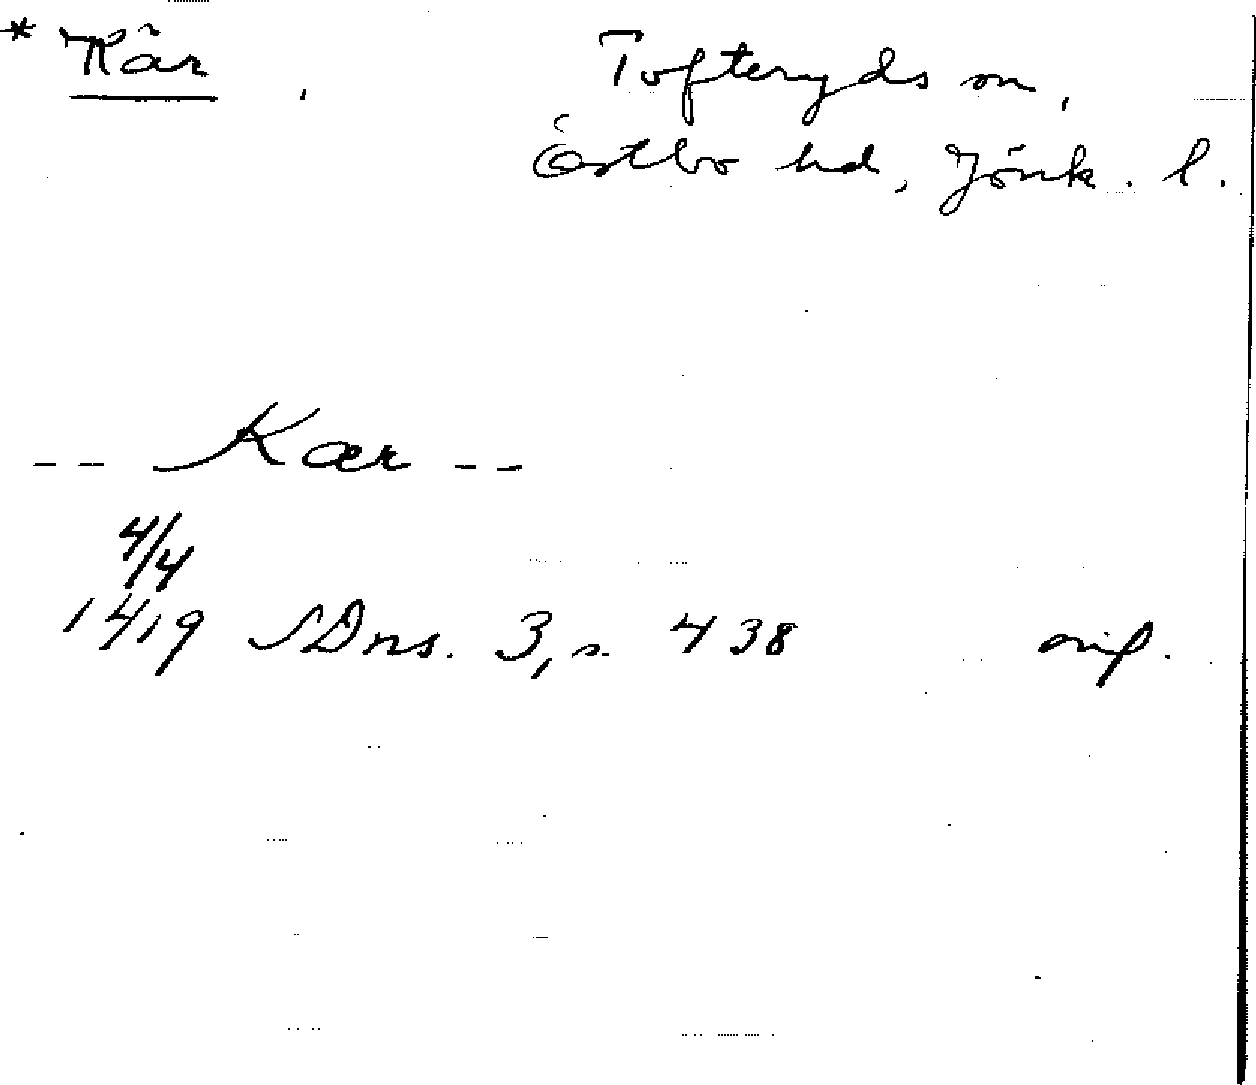 * Kär, Tofteryds sn,
Östbo hd, Jönk. l.
-- Kær --
4/4
1419 SDns. 3, s. 438 orig.